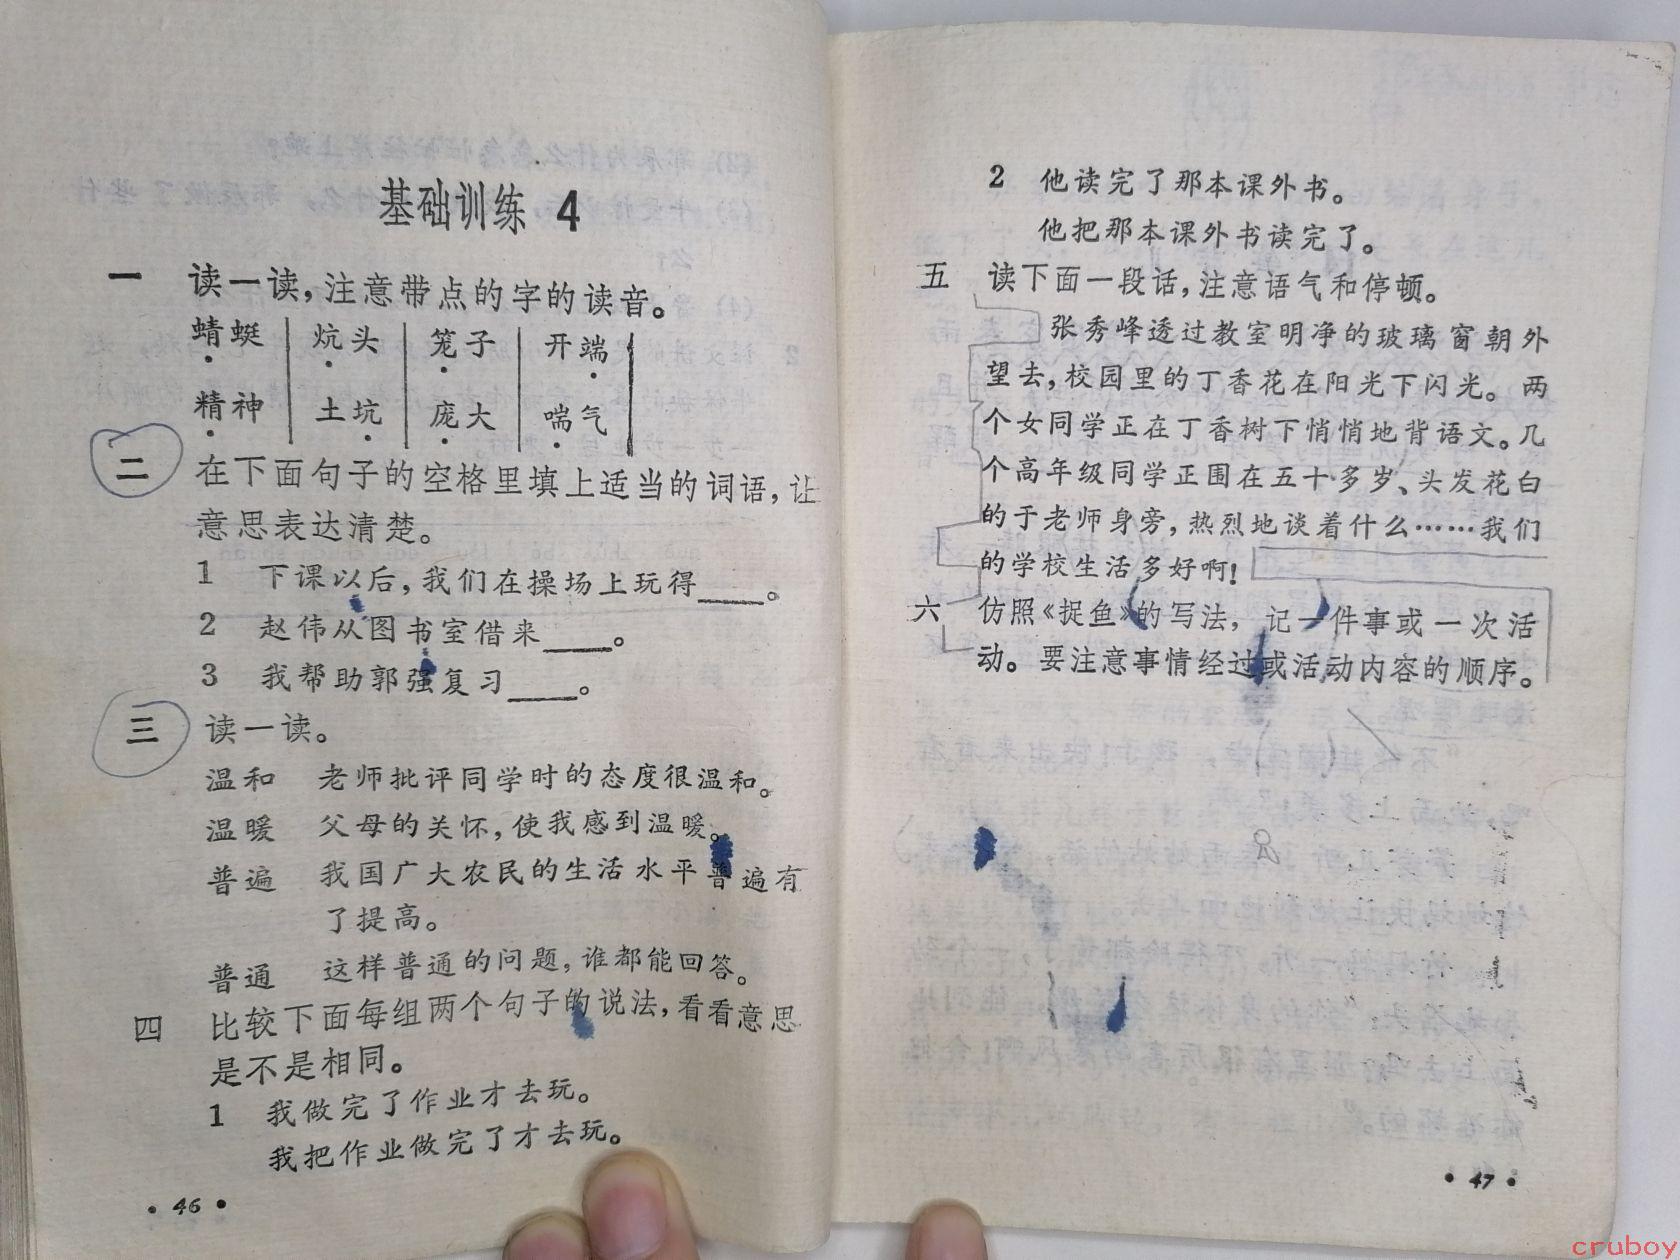 基础训练 4
一 读一读，注意带点的字的读音。
蜻蜓 炕头 笼子 开端
精神 土坑 庞大 喘气
二 在下面句子的空格里填上适当的词语，让
意思表达清楚。
1 下课以后，我们在操场上玩得____。
2 赵伟从图书室借来____。
3 我帮助郭强复习____。
三 读一读。
温和 老师批评同学时的态度很温和。
温暖 父母的关怀，使我感到温暖。
普遍 我国广大农民的生活水平普遍有
了提高。
普通 这样普通的问题，谁都能回答。
四 比较下面每组两个句子的说法，看看意思
是不是相同。
1 我做完了作业才去玩。
我把作业做完了才去玩。
• 46 •
2 他读完了那本课外书。
他把那本课外书读完了。
五 读下面一段话，注意语气和停顿。
张秀峰透过教室明净的玻璃窗朝外
望去，校园里的丁香花在阳光下闪光。两
个女同学正在丁香树下悄悄地背语文。几
个高年级同学正围在五十多岁、头发花白
的于老师身旁，热烈地谈着什么……我们
的学校生活多好啊！
六 仿照《捉鱼》的写法，记一件事或一次活
动。要注意事情经过或活动内容的顺序。
• 47 •
cruboy